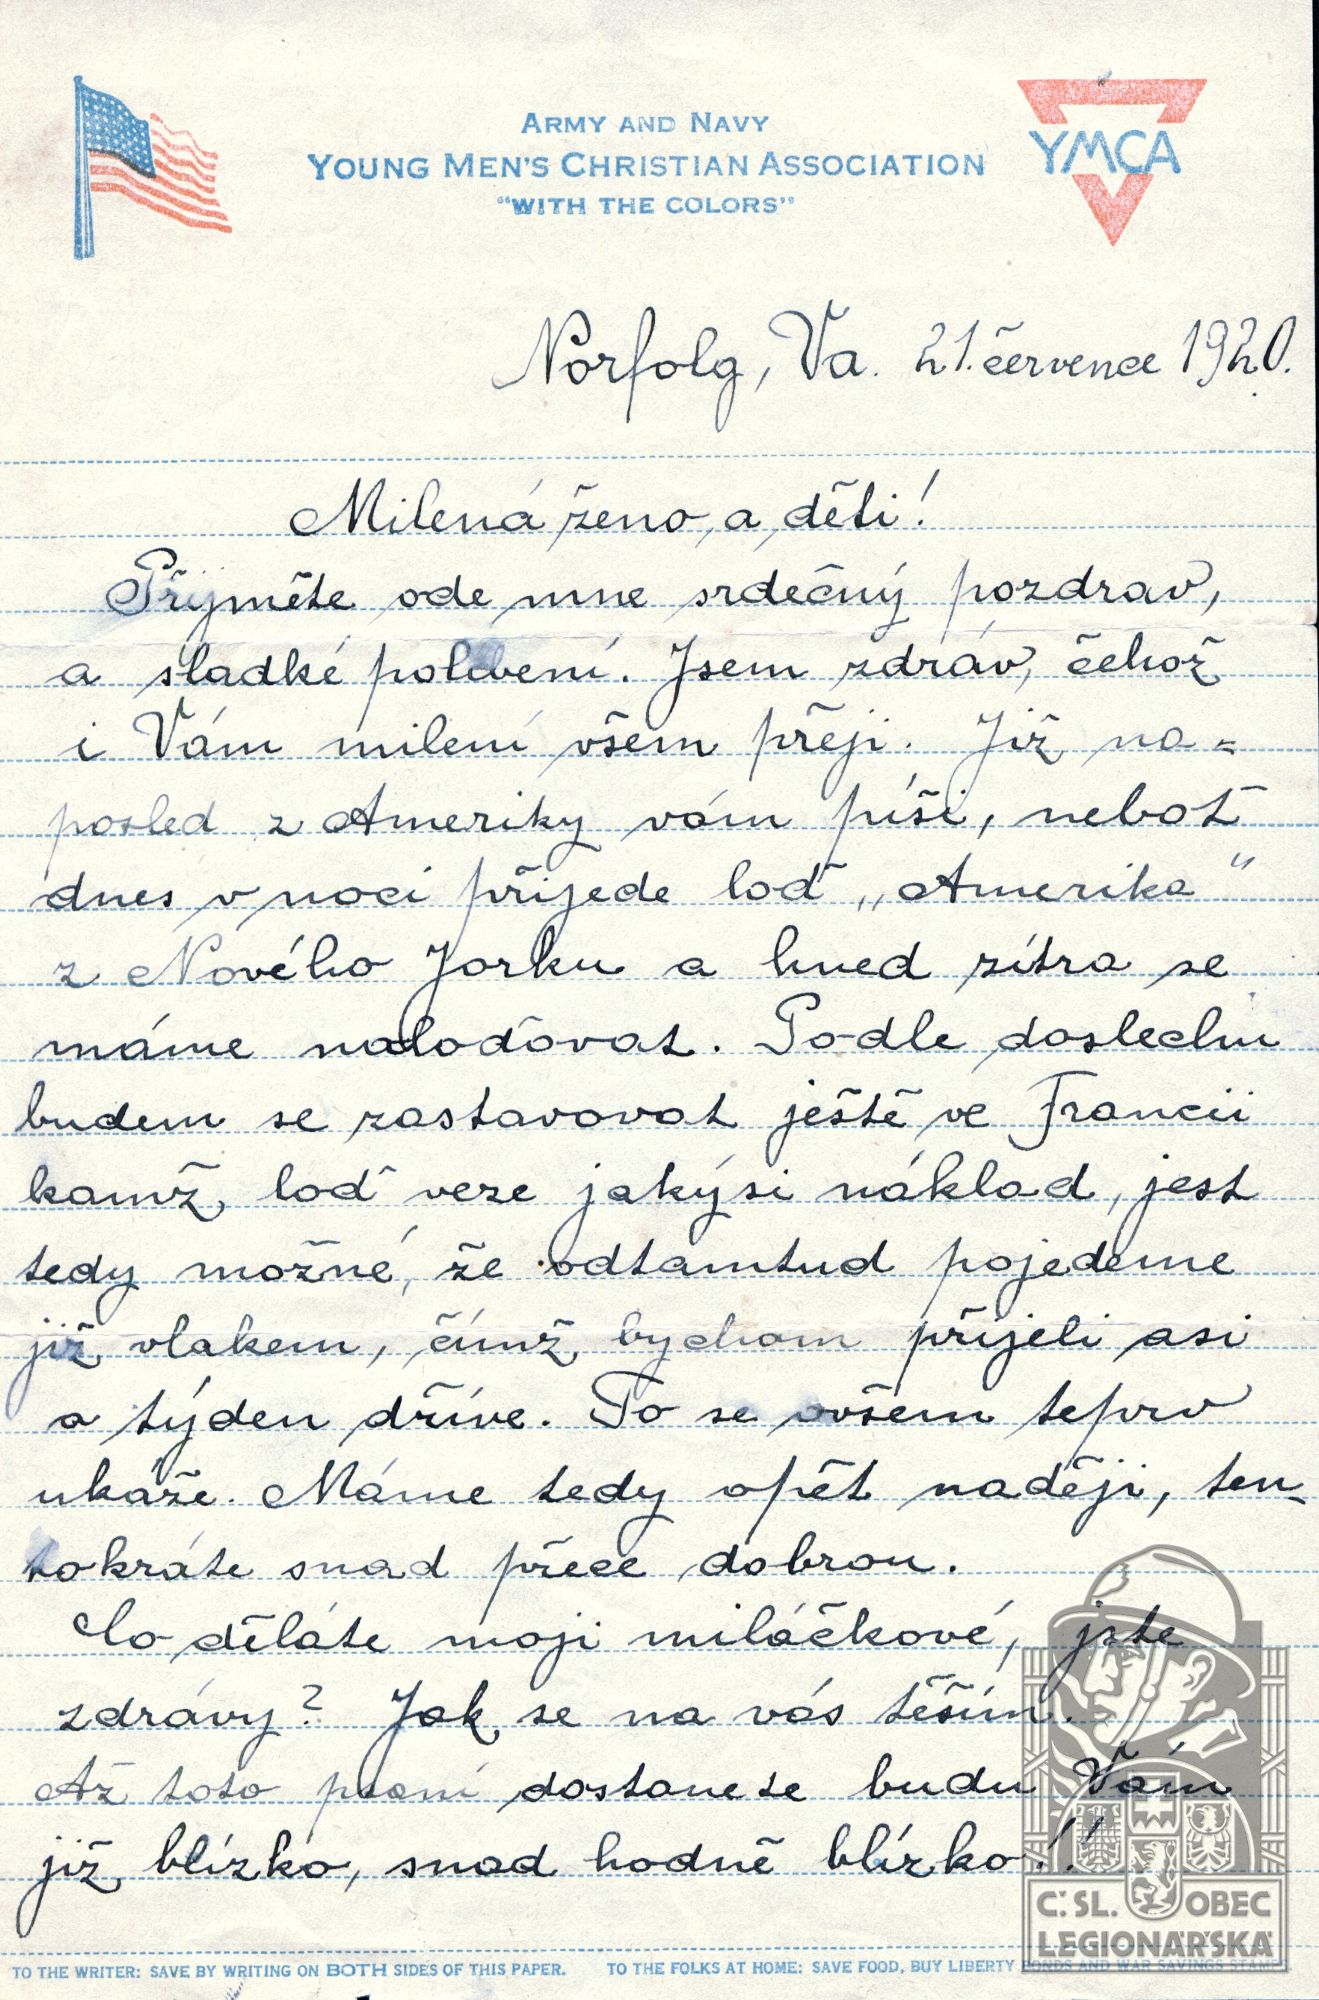 ARMY AND NAVY
YOUNG MEN'S CHRISTIAN ASSOCIATION
"WITH THE COLORS"
YMCA
Norfolg, Va. 21. července 1920.
Milená ženo, a děti!
Přijměte ode mne srdečný pozdrav,
a sladké políbení. Jsem zdráv, čehož
i Vám milení všem přeji. Již na=
posled z Ameriky vám píši, neboť
dnes v noci přijede loď „Amerika"
z Nového Jorku a hned zítra se
máme naloďovat. Podle doslechu
budem se zastavovat ještě ve Francii
kamž loď veze jakýsi náklad, jest
tedy možné, že odtamtud pojedeme
již vlakem, čímž bychom přijeli asi
a týden dříve. To se ovšem teprv
ukáže. Máme tedy opět naději, ten-
tokráte snad přece dobrou.
Co děláte moji miláčkové, jste
zdrávy? Jak se na vás těším.
Až toto psaní dostanete budu Vám
již blízko, snad hodně blízko!!
Č. SL. OBEC
LEGIONÁŘSKÁ
TO THE WRITER: SAVE BY WRITING ON BOTH SIDES OF THIS PAPER. TO THE FOLKS AT HOME: SAVE FOOD, BUY LIBERTY BONDS AND WAR SAVINGS STAMPS